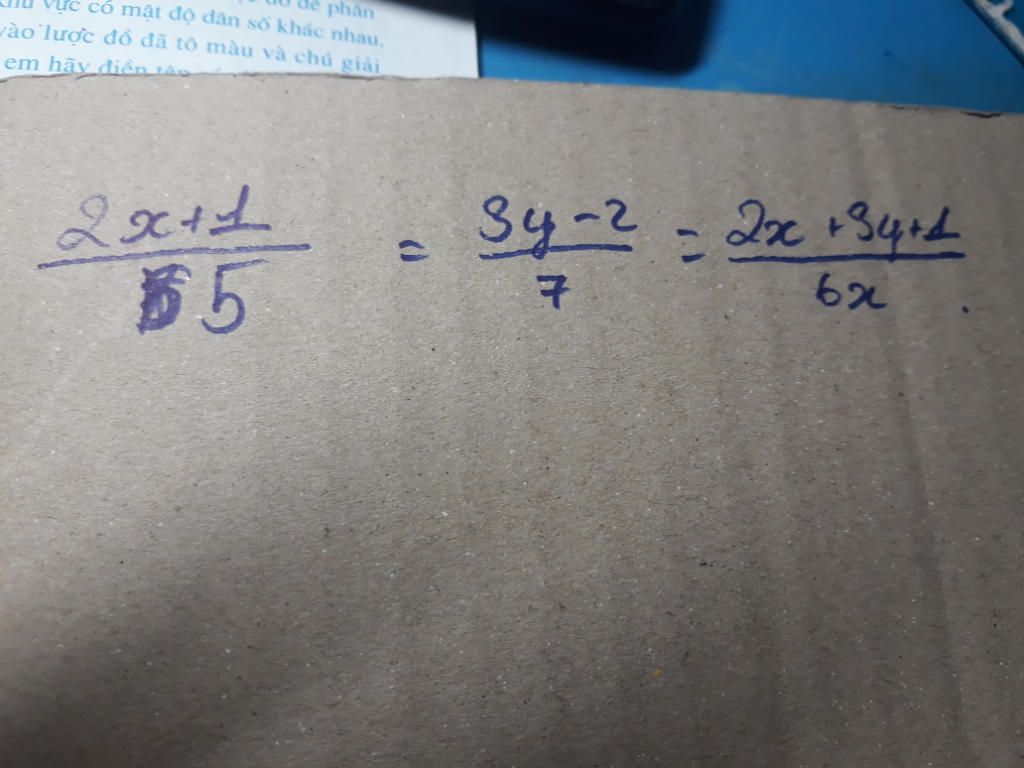 khu vực có mật độ dân số khác nhau.
vào lược đồ đã tô màu và chú giải
em hãy điền tên
2x+1 / 5 = 3y-2 / 7 = 2x+3y+1 / 6x .